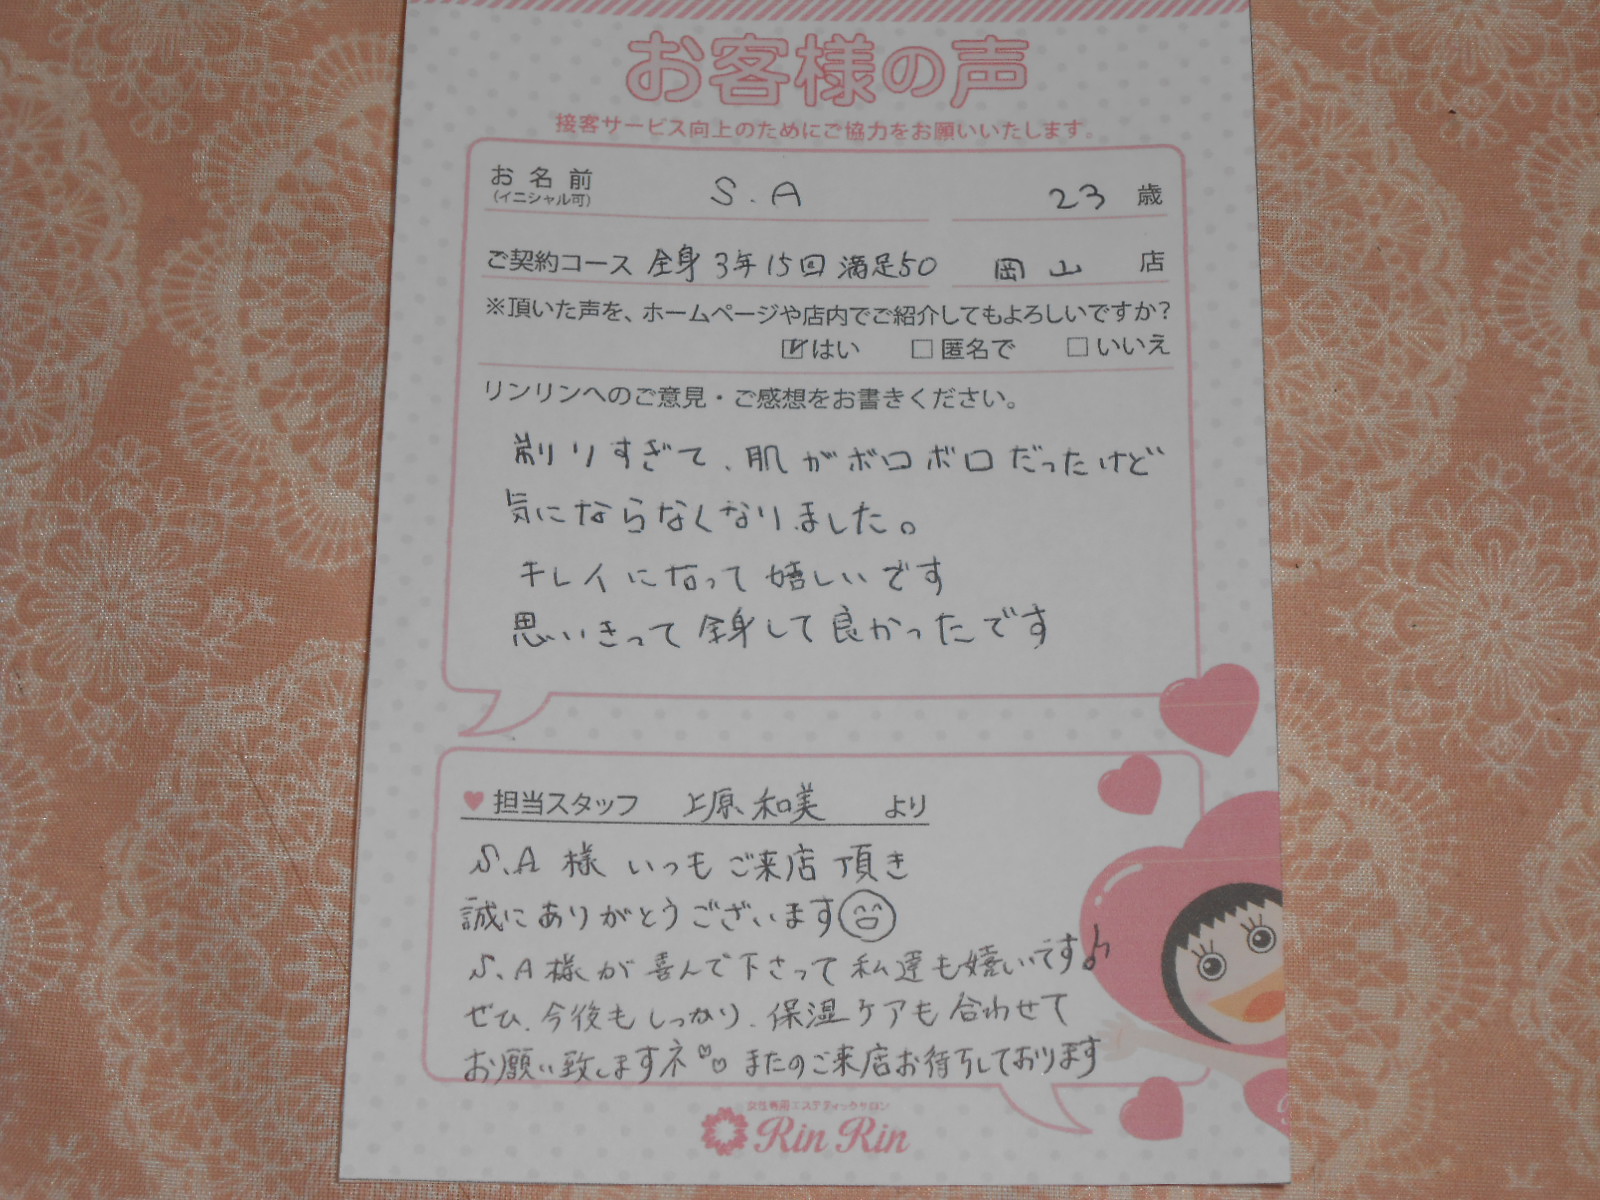 お客様の声
接客サービス向上のためにご協力をお願いいたします。
お名前 S.A 23 歳
(イニシャル可)
ご契約コース 全身 3年15回 満足50 岡山 店
※頂いた声を、ホームページや店内でご紹介してもよろしいですか?
☑はい □匿名で □いいえ
リンリンへのご意見・ご感想をお書きください。
剃りすぎて、肌がボロボロだったけど
気にならなくなりました。
キレイになって嬉しいです
思いきって全身して良かったです
♥担当スタッフ 上原和美 より
S.A 様 いつもご来店頂き
誠にありがとうございます
S.A様が喜んで下さって私達も嬉いいです♪
ぜひ、今後もしっかり、保湿ケアも合わせて
お願い致しますネ♡♡またのご来店お待ちしております
女性専用エステティックサロン
Rin Rin